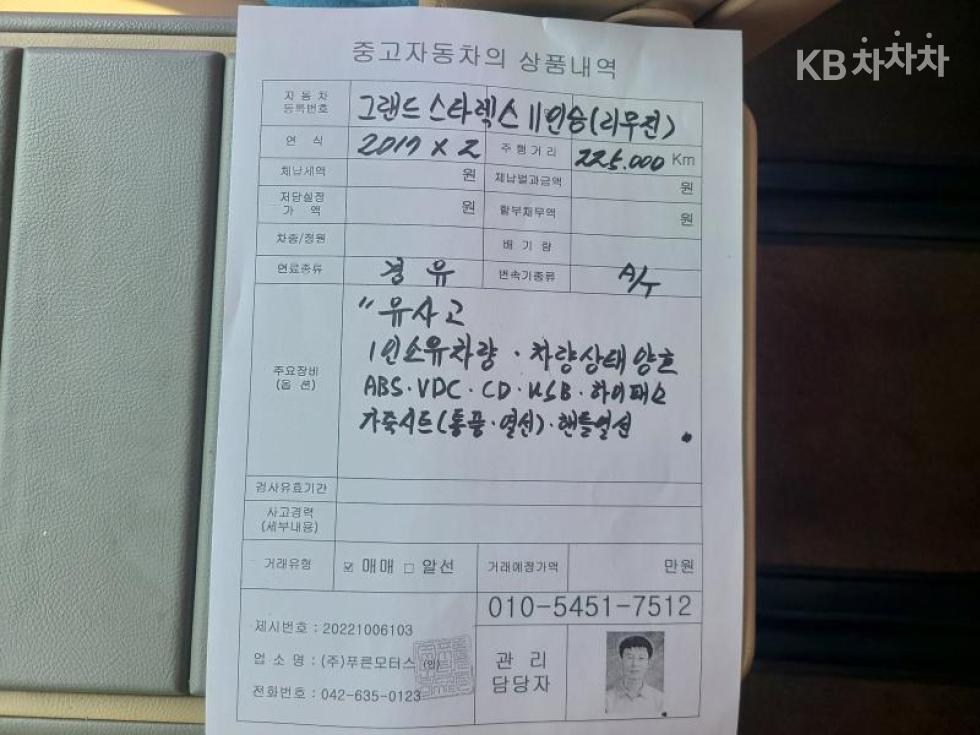 KB차차차
중고자동차의 상품내역
자 동 차
등록번호
그랜드 스타렉스 11인승(리무진)
연 식
2017 x 2
주 행 거 리
225.000 Km
체납세액
원
체납벌과금액
원
저당설정
가 액
원
할부채무액
원
차종/정원
배 기 량
연료종류
경 유
변속기종류
A/T
주요장비
(옵 션)
"유사고
1인소유차량 · 차량상태 양호
ABS · VDC · CD · USB · 하이패스
가죽시트(통풍 · 열선) · 핸들열선
검사유효기간
사고경력
(세부내용)
거래유형
☑ 매매 □ 알선
거래예정가액
만원
010-5451-7512
제시번호 : 20221006103
업 소 명 : (주)푸른모터스 (인)
전화번호 : 042-635-0123
관 리
담당자